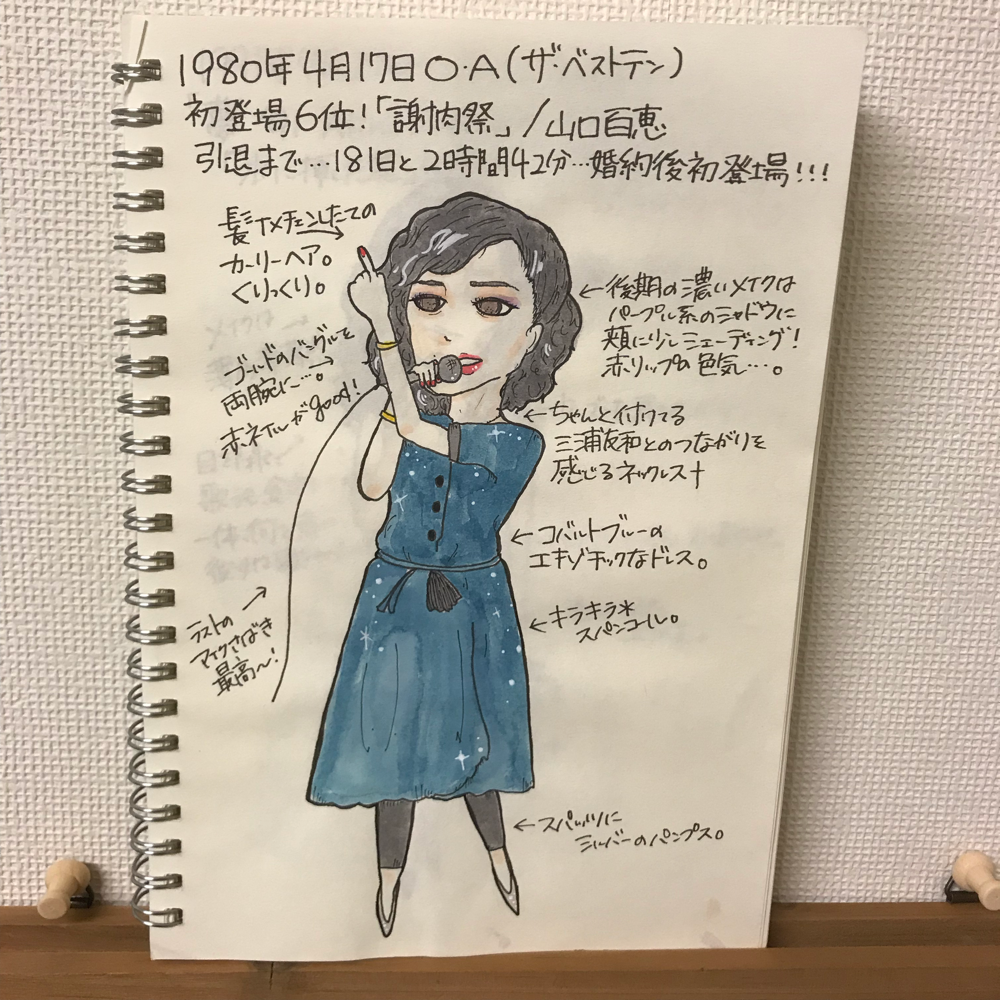 1980年4月17日O・A(ザ・ベストテン)
初登場6位!「謝肉祭」/山口百恵
引退まで…181日と2時間42分…婚約後初登場!!!
髪イメチェンしたての
カーリーヘア。
くりっくり。
ゴールドのバングルを
両腕に…。
赤ネイルがgood!
ラストの
マイクさばき
最高〜!
←後期の濃いメイクは
パープル系のシャドウに
頬に少しシェーディング!
赤リップの色気…。
←ちゃんと付けてる
三浦友和とのつながりを
感じるネックレス†
←コバルトブルーの
エキゾチックなドレス。
←キラキラ*
スパンコール。
←スパッツに
シルバーのパンプス。